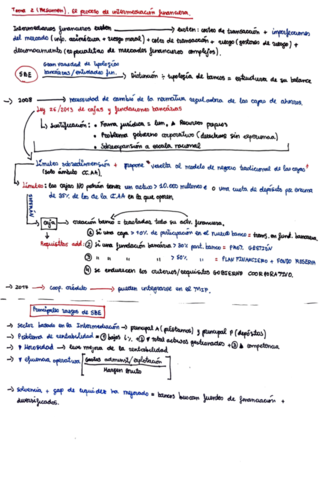 Tema 2 (Resumen). El proceso de intermediación financiera.
Intermediarios financieros existen → existen: costes de transacción + imperfecciones
del mercado (info. asimétrica + riesgo moral) + coste de transacción + riesgo (
desconocimiento (expectativas de mercados financieros complejos).
Gran variedad de tipología
SBE bancarias/entidades fin. → Distinción: tipología de bancos = estructuras de su balance
→ 2008 → necesidad de cambio de la normativa reguladora de las cajas de ahorros
Ley 26/2013 de cajas y fundaciones bancarias
↳ Justificación: • Forma jurídica = recursos propios
• Problema gobierno corporativo (directivos sin experiencia)
• Sobreexpansión a escala nacional
Límites sobredimensión + propone "vuelta al modelo de negocio tradicional de las cajas"
(solo ámbito CC.AA.)
Límites: las cajas NO podrán tener un activo > 10.000 millones € o una cuota de depósitos
de 35% de los de la CC.AA en la que operen.
caja → creación banco = trasladar todo su activ. financiera.
① si una caja > 10% de participación en el nuevo banco = trans. en fund. bancaria.
Requisitos add: ② si una fundación bancaria > 30% part. banco = PROT. GESTIÓN
③ " " " > 50% " = PLAN FINANCIERO + FONDO RESERVA
④ se endurecen los criterios/requisitos GOBIERNO CORPORATIVO.
→ 2017 → coop. crédito → pueden integrarse en el
Principales rasgos de SBE
→ Sector basado en la Intermediación → principal A (préstamos) y principal P (depósitos)
→ Problema de rentabilidad = ① bajos i% + ② ▼ total activos gestionados + ③ ▲ competencia
→ ▼ Morosidad → leve mejora de la rentabilidad
→ ▼ eficiencia operativa [Gastos administ./explotación
Margen bruto]
→ solvencia + gap de liquidez ha mejorado = bancos buscan fuentes de financiación +
diversificadas.